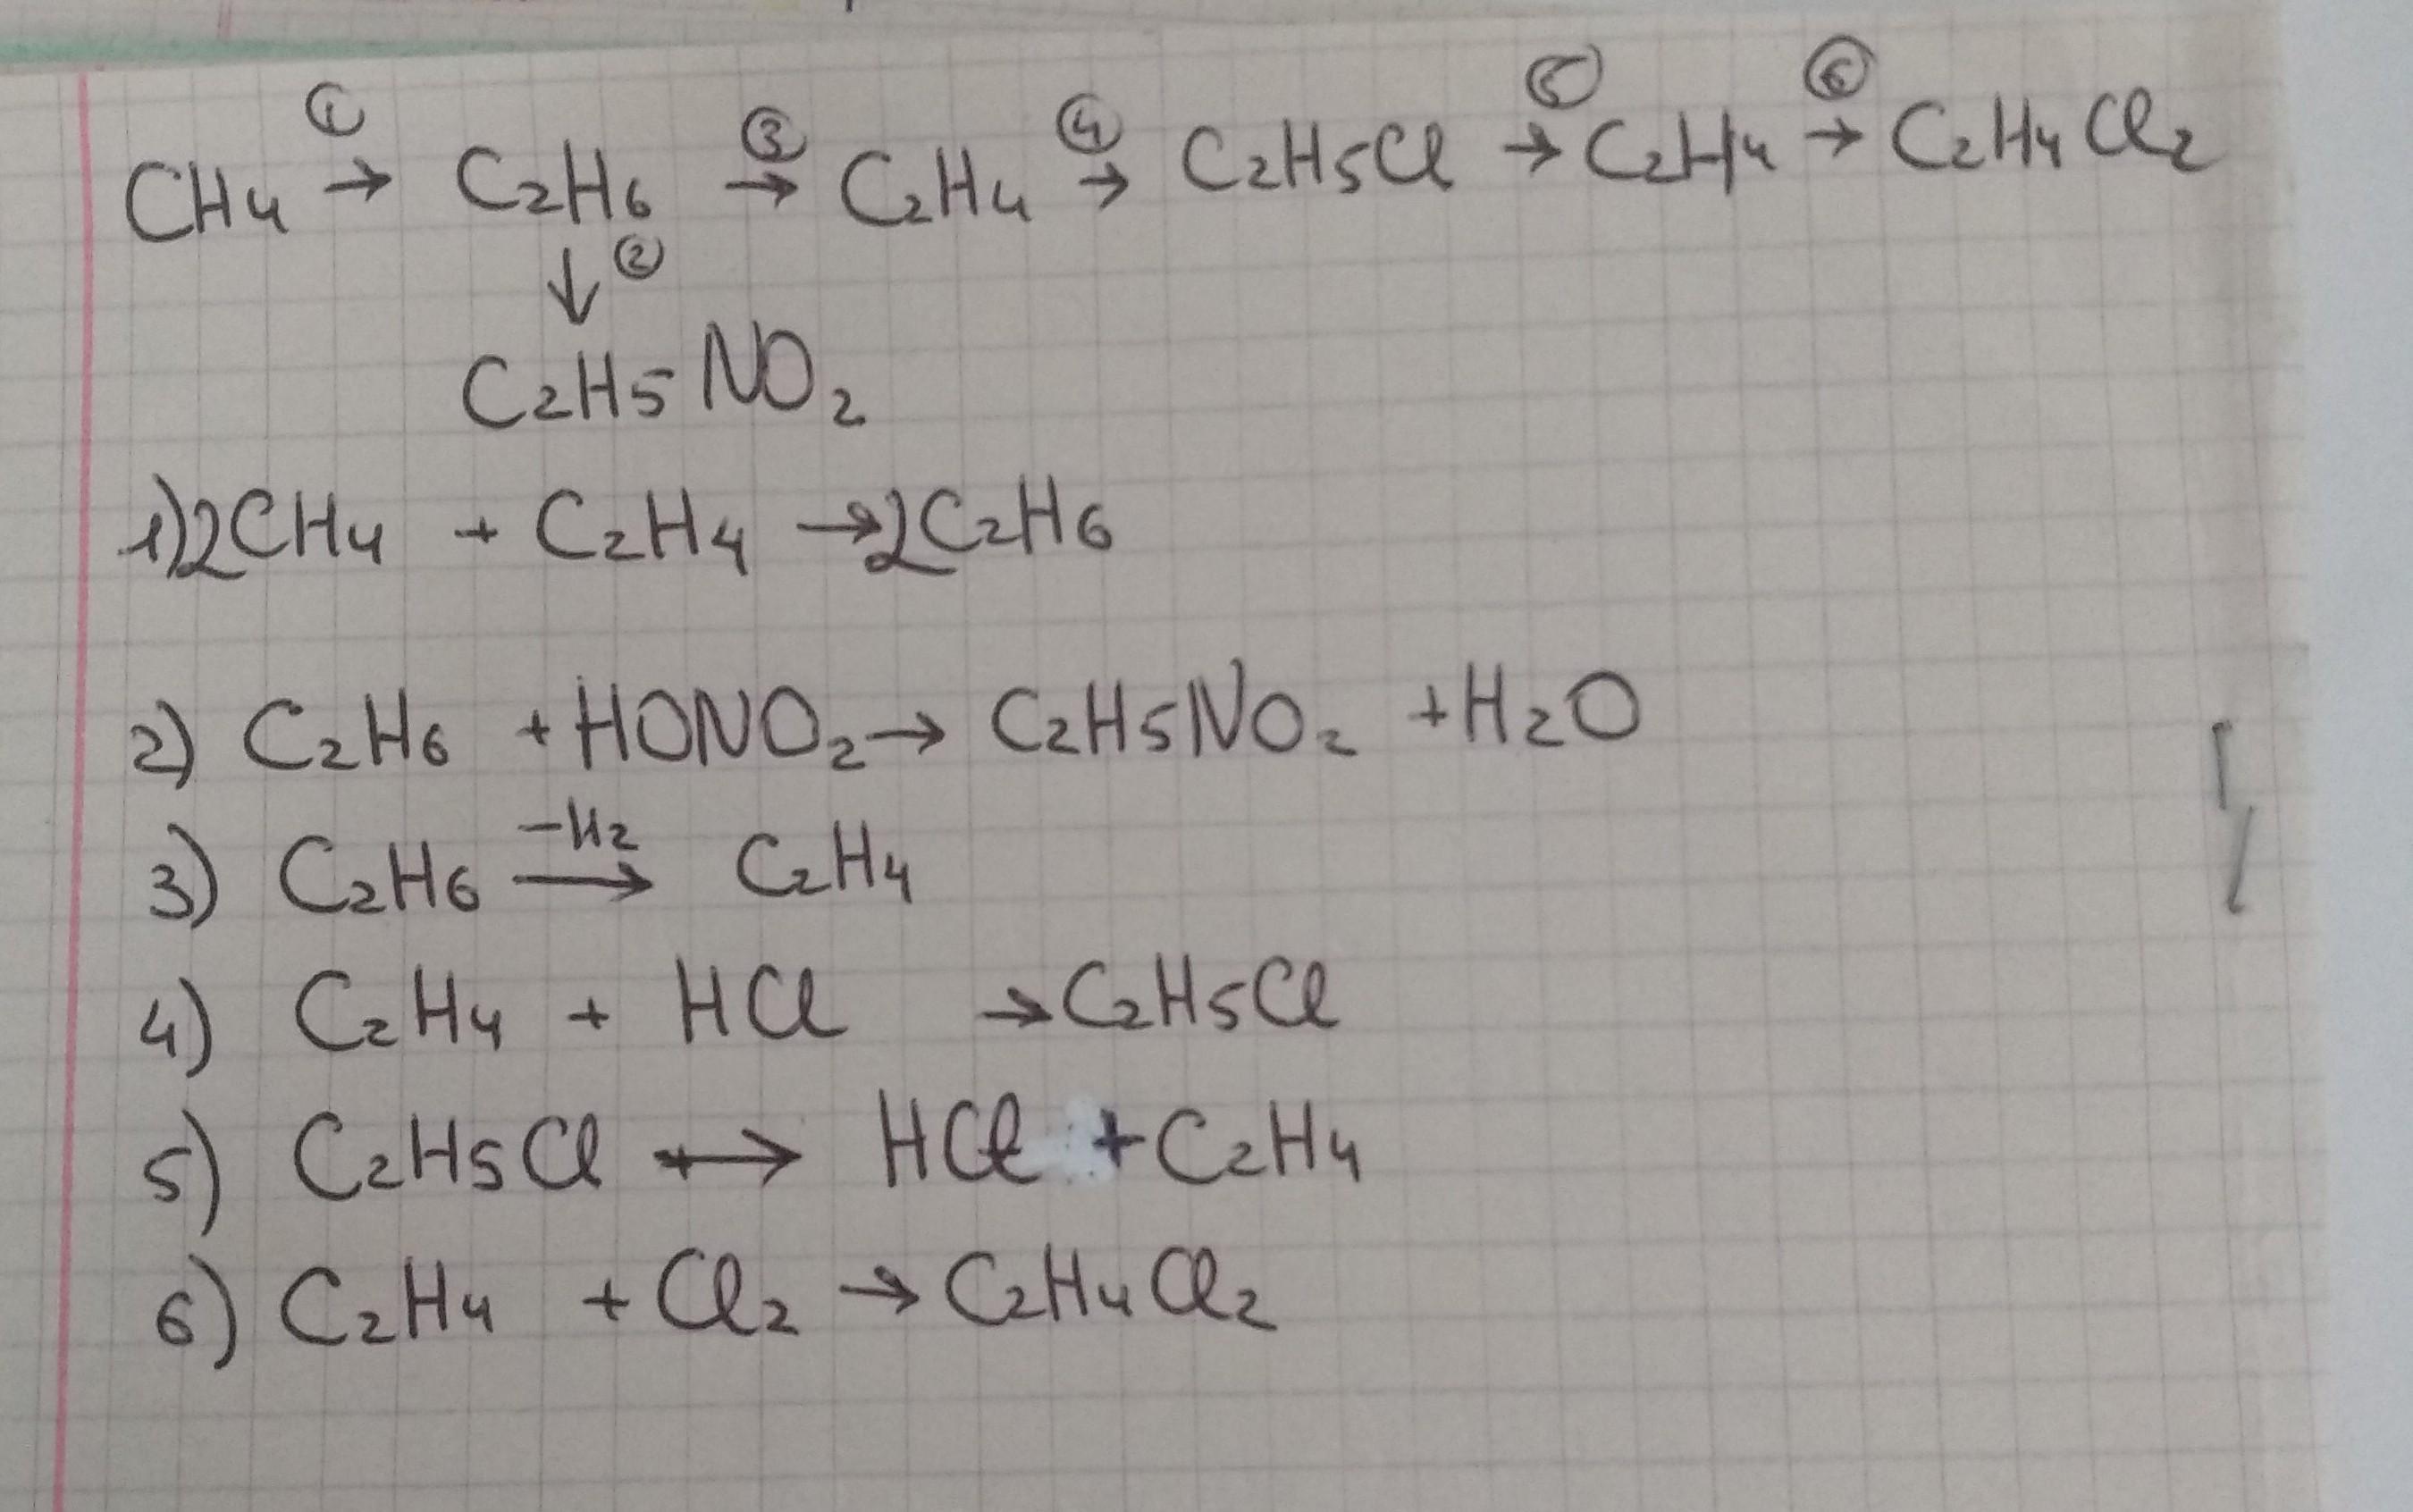 CH4 ① → C2H6 ③ → C2H4 ④ → C2H5Cl ⑤ → C2H4 ⑥ → C2H4Cl2
↓ ②
C2H5NO2
1) 2CH4 + C2H4 → 2C2H6
2) C2H6 + HONO2 → C2H5NO2 + H2O
-H2
3) C2H6 → C2H4
4) C2H4 + HCl → C2H5Cl
5) C2H5Cl → HCl + C2H4
6) C2H4 + Cl2 → C2H4Cl2